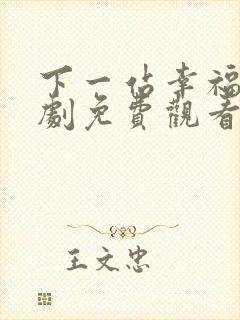 下一佔幸福
劇免費觀看
王文忠